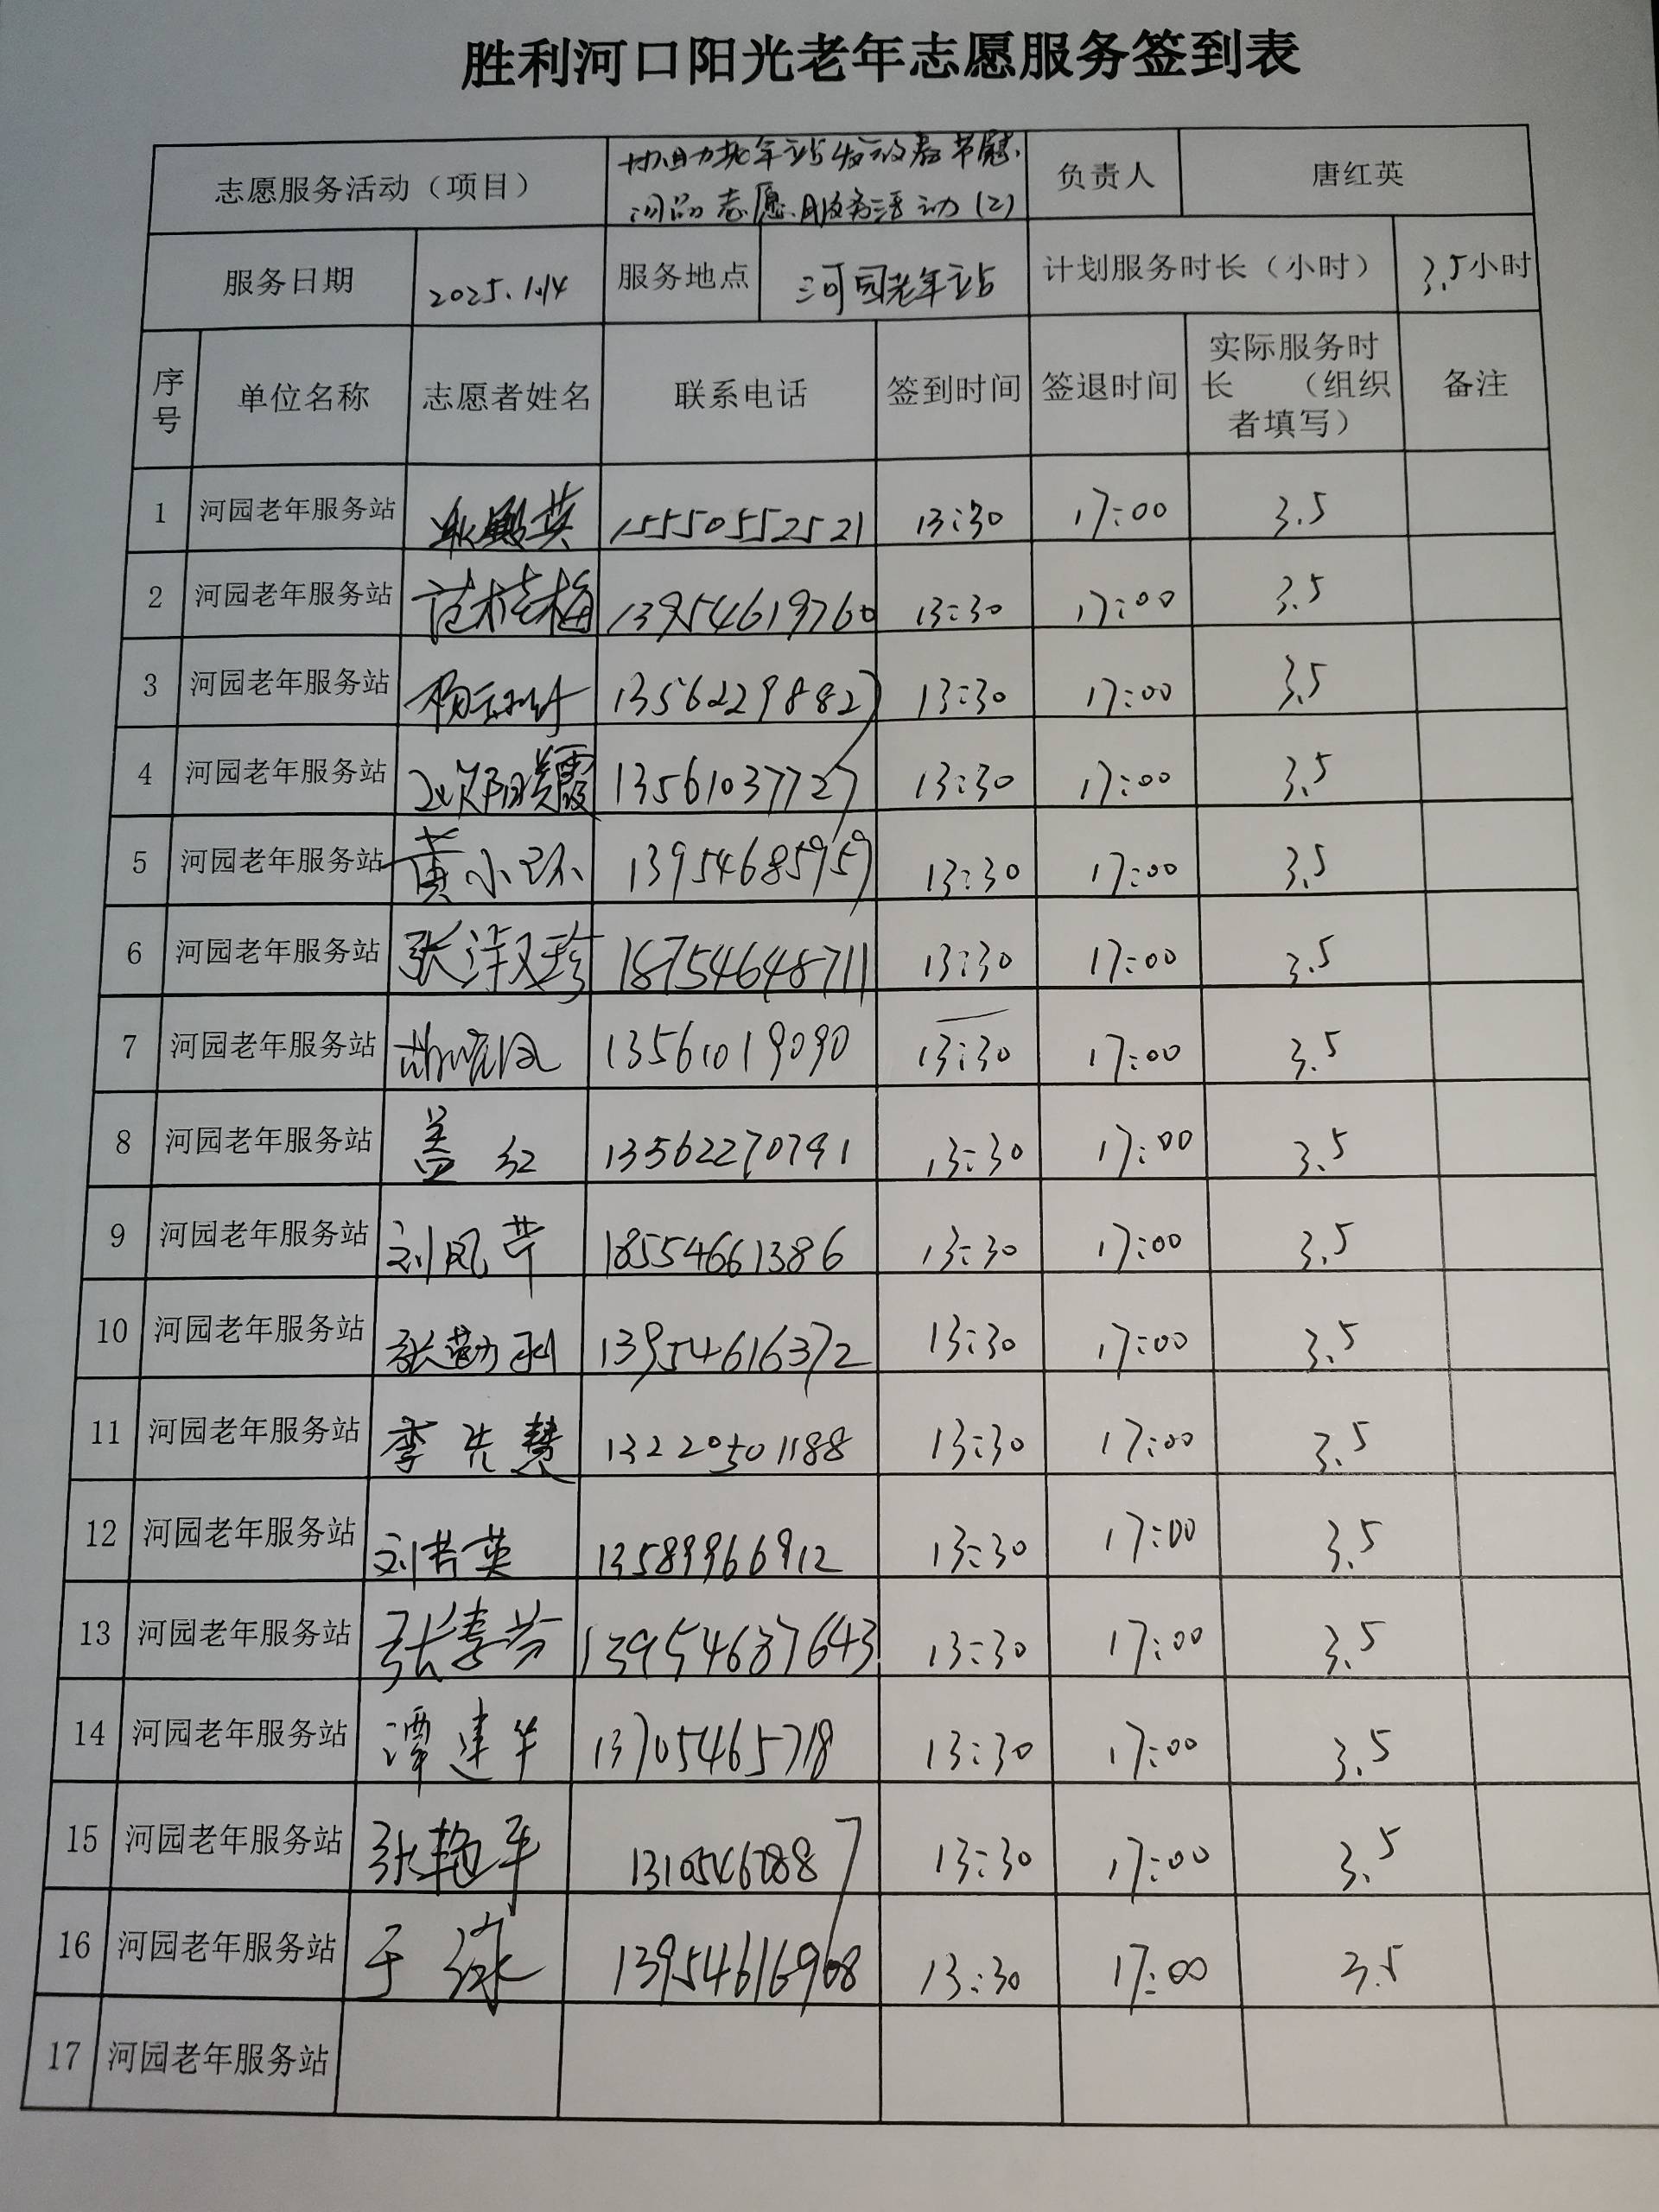 胜利河口阳光老年志愿服务签到表
志愿服务活动（项目） 协助老年站发放春节慰问品志愿服务活动(2) 负责人 唐红英
服务日期 2025.1.14 服务地点 河园老年站 计划服务时长（小时） 3.5小时
序号 单位名称 志愿者姓名 联系电话 签到时间 签退时间 实际服务时长 （组织者填写） 备注
1 河园老年服务站 15550552521 13:30 17:00 3.5
2 河园老年服务站 范桂梅 13954619760 13:30 17:00 3.5
3 河园老年服务站 13562298827 13:30 17:00 3.5
4 河园老年服务站 13561037727 13:30 17:00 3.5
5 河园老年服务站 黄小环 13954685959 13:30 17:00 3.5
6 河园老年服务站 张淑珍 18754648711 13:30 17:00 3.5
7 河园老年服务站 13561019090 13:30 17:00 3.5
8 河园老年服务站 盖红 13562270791 13:30 17:00 3.5
9 河园老年服务站 刘凤芹 18554661386 13:30 17:00 3.5
10 河园老年服务站 张勤利 13954616372 13:30 17:00 3.5
11 河园老年服务站 李先慧 13220501188 13:30 17:00 3.5
12 河园老年服务站 刘若英 13589966912 13:30 17:00 3.5
13 河园老年服务站 张孝芳 13954637643 13:30 17:00 3.5
14 河园老年服务站 潭建华 13705465718 13:30 17:00 3.5
15 河园老年服务站 张艳平 13:30 17:00 3.5
16 河园老年服务站 于泳 13954616968 13:30 17:00 3.5
17 河园老年服务站